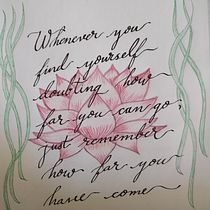 Whenever you
find yourself
doubting how
far you can go,
just remember
how far you
have come